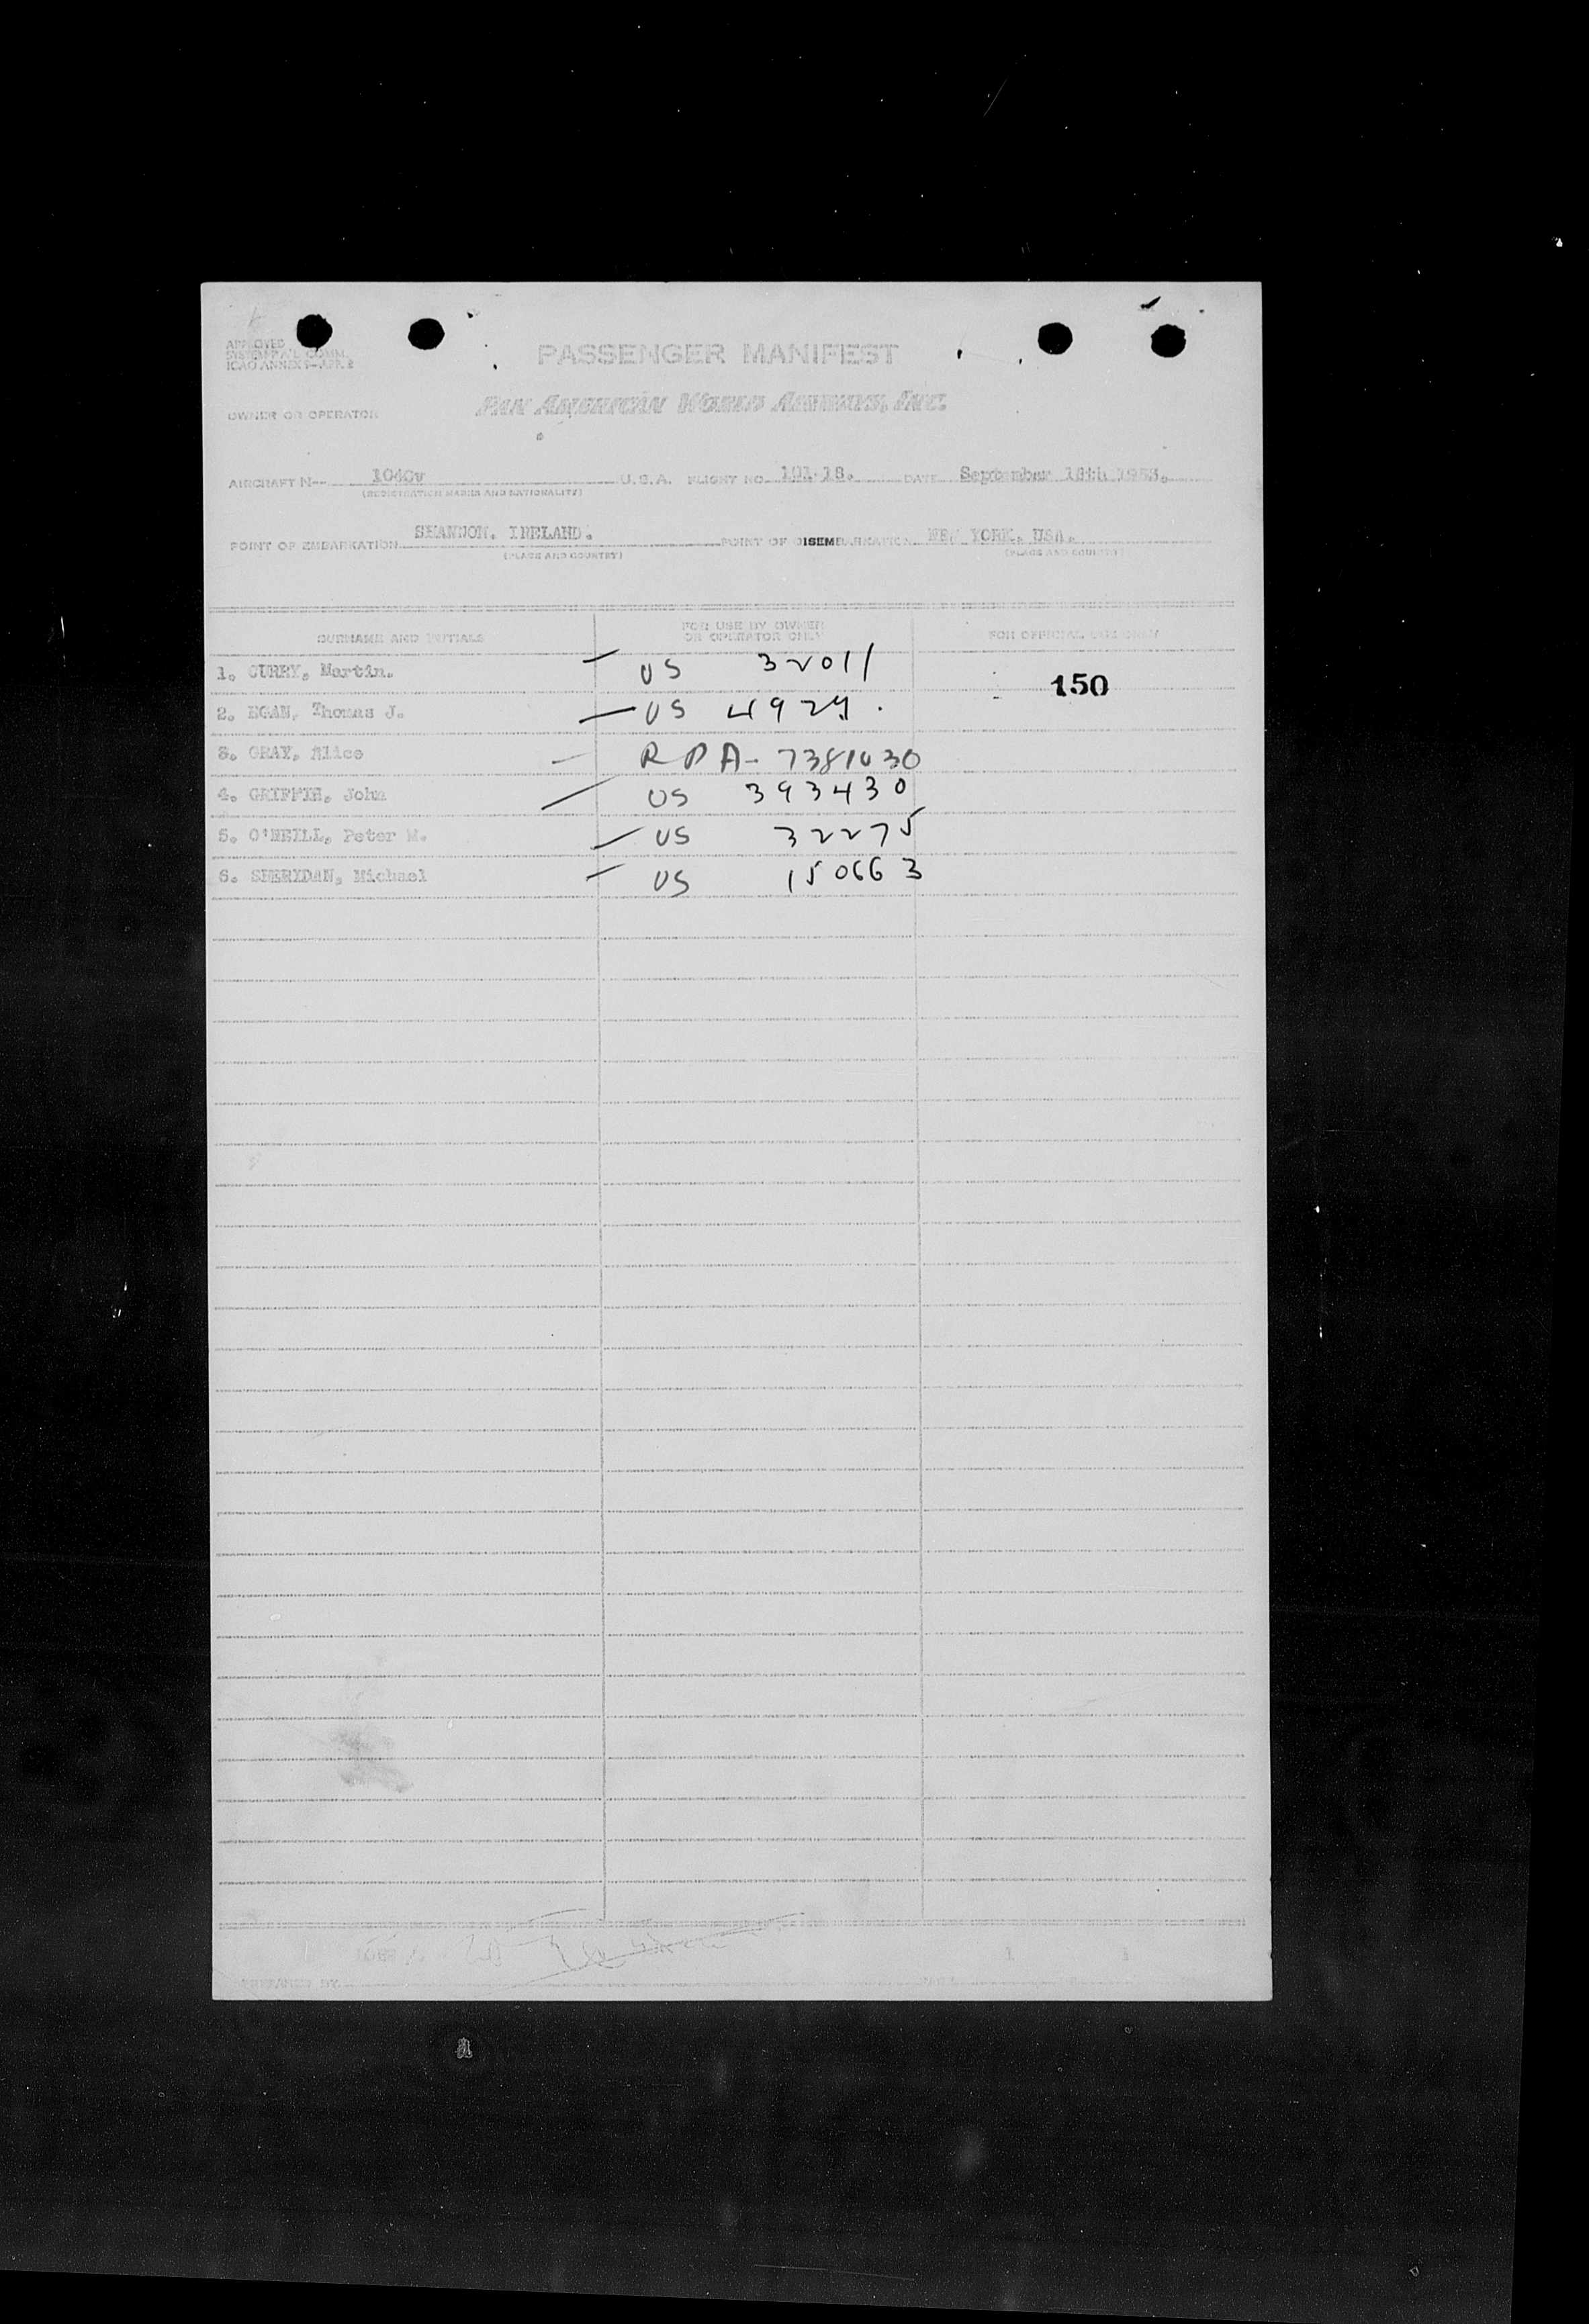 APPROVED
PASSENGER MANIFEST
ICAO ANNEX 9-APP. 2
OWNER OR OPERATOR
PAN AMERICAN WORLD AIRWAYS, INC.
AIRCRAFT N-- 1040v U.S.A. FLIGHT NO. 101-18. DATE September 18th 1953.
(REGISTRATION MARKS AND NATIONALITY)
POINT OF EMBARKATION SHANNON. IRELAND. POINT OF DISEMBARKATION NEW YORK. USA.
(PLACE AND COUNTRY) (PLACE AND COUNTRY)
SURNAME AND INITIALS FOR USE BY OWNER OR OPERATOR ONLY FOR OFFICIAL USE ONLY
1. CURRY, Martin. US 32011
150
2. EGAN, Thomas J. US
3. GRAY, Alice RPA-7381030
4. GRIFFIN, John US 393430
5. O'NEILL, Peter M. US 32275
6. SHERIDAN, Michael US 150663
PREPARED BY